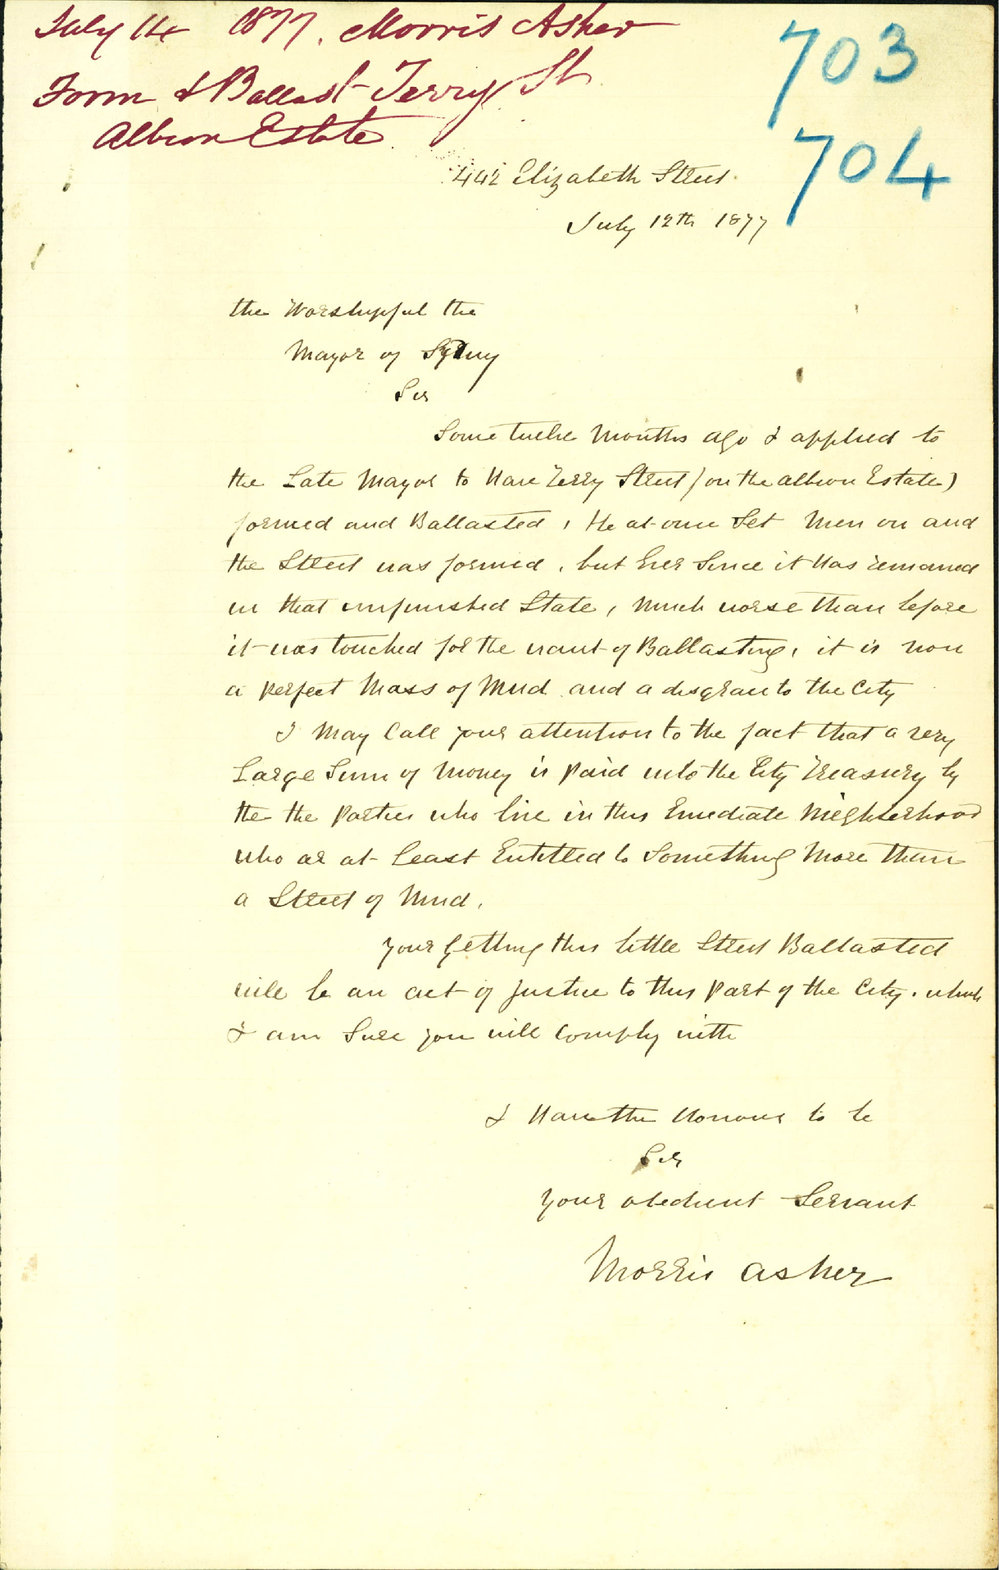 July 14 1877. Morris Asher
Form & Ballast Terry St
Albion Estate
703
704
442 Elizabeth Street
July 12th 1877
the Worshipful the
Mayor of Sydney
Sir
Some twelve Months ago I applied to
the Late Mayor to Have Terry Street (on the Albion Estate)
formed and Ballasted, He at once Set Men on and
the Street was formed, but Ever Since it Has remained
in that unfinished State, Much worse than before
it was touched for the want of Ballasting, it is now
a perfect Mass of Mud and a disgrace to the City
I May Call your attention to the fact that a very
Large Sum of Money is paid into the City Treasury by
the the Parties who live in this Emediate Neighberhood
who ar at Least Entitled to Something More than
a Street of Mud.
your Getting this little Street Ballasted
will be an act of Justice to this Part of the City, which
I am Sure you will Comply with
I Have the Honour to be
Sir
your obedient Servant
Morris Asher